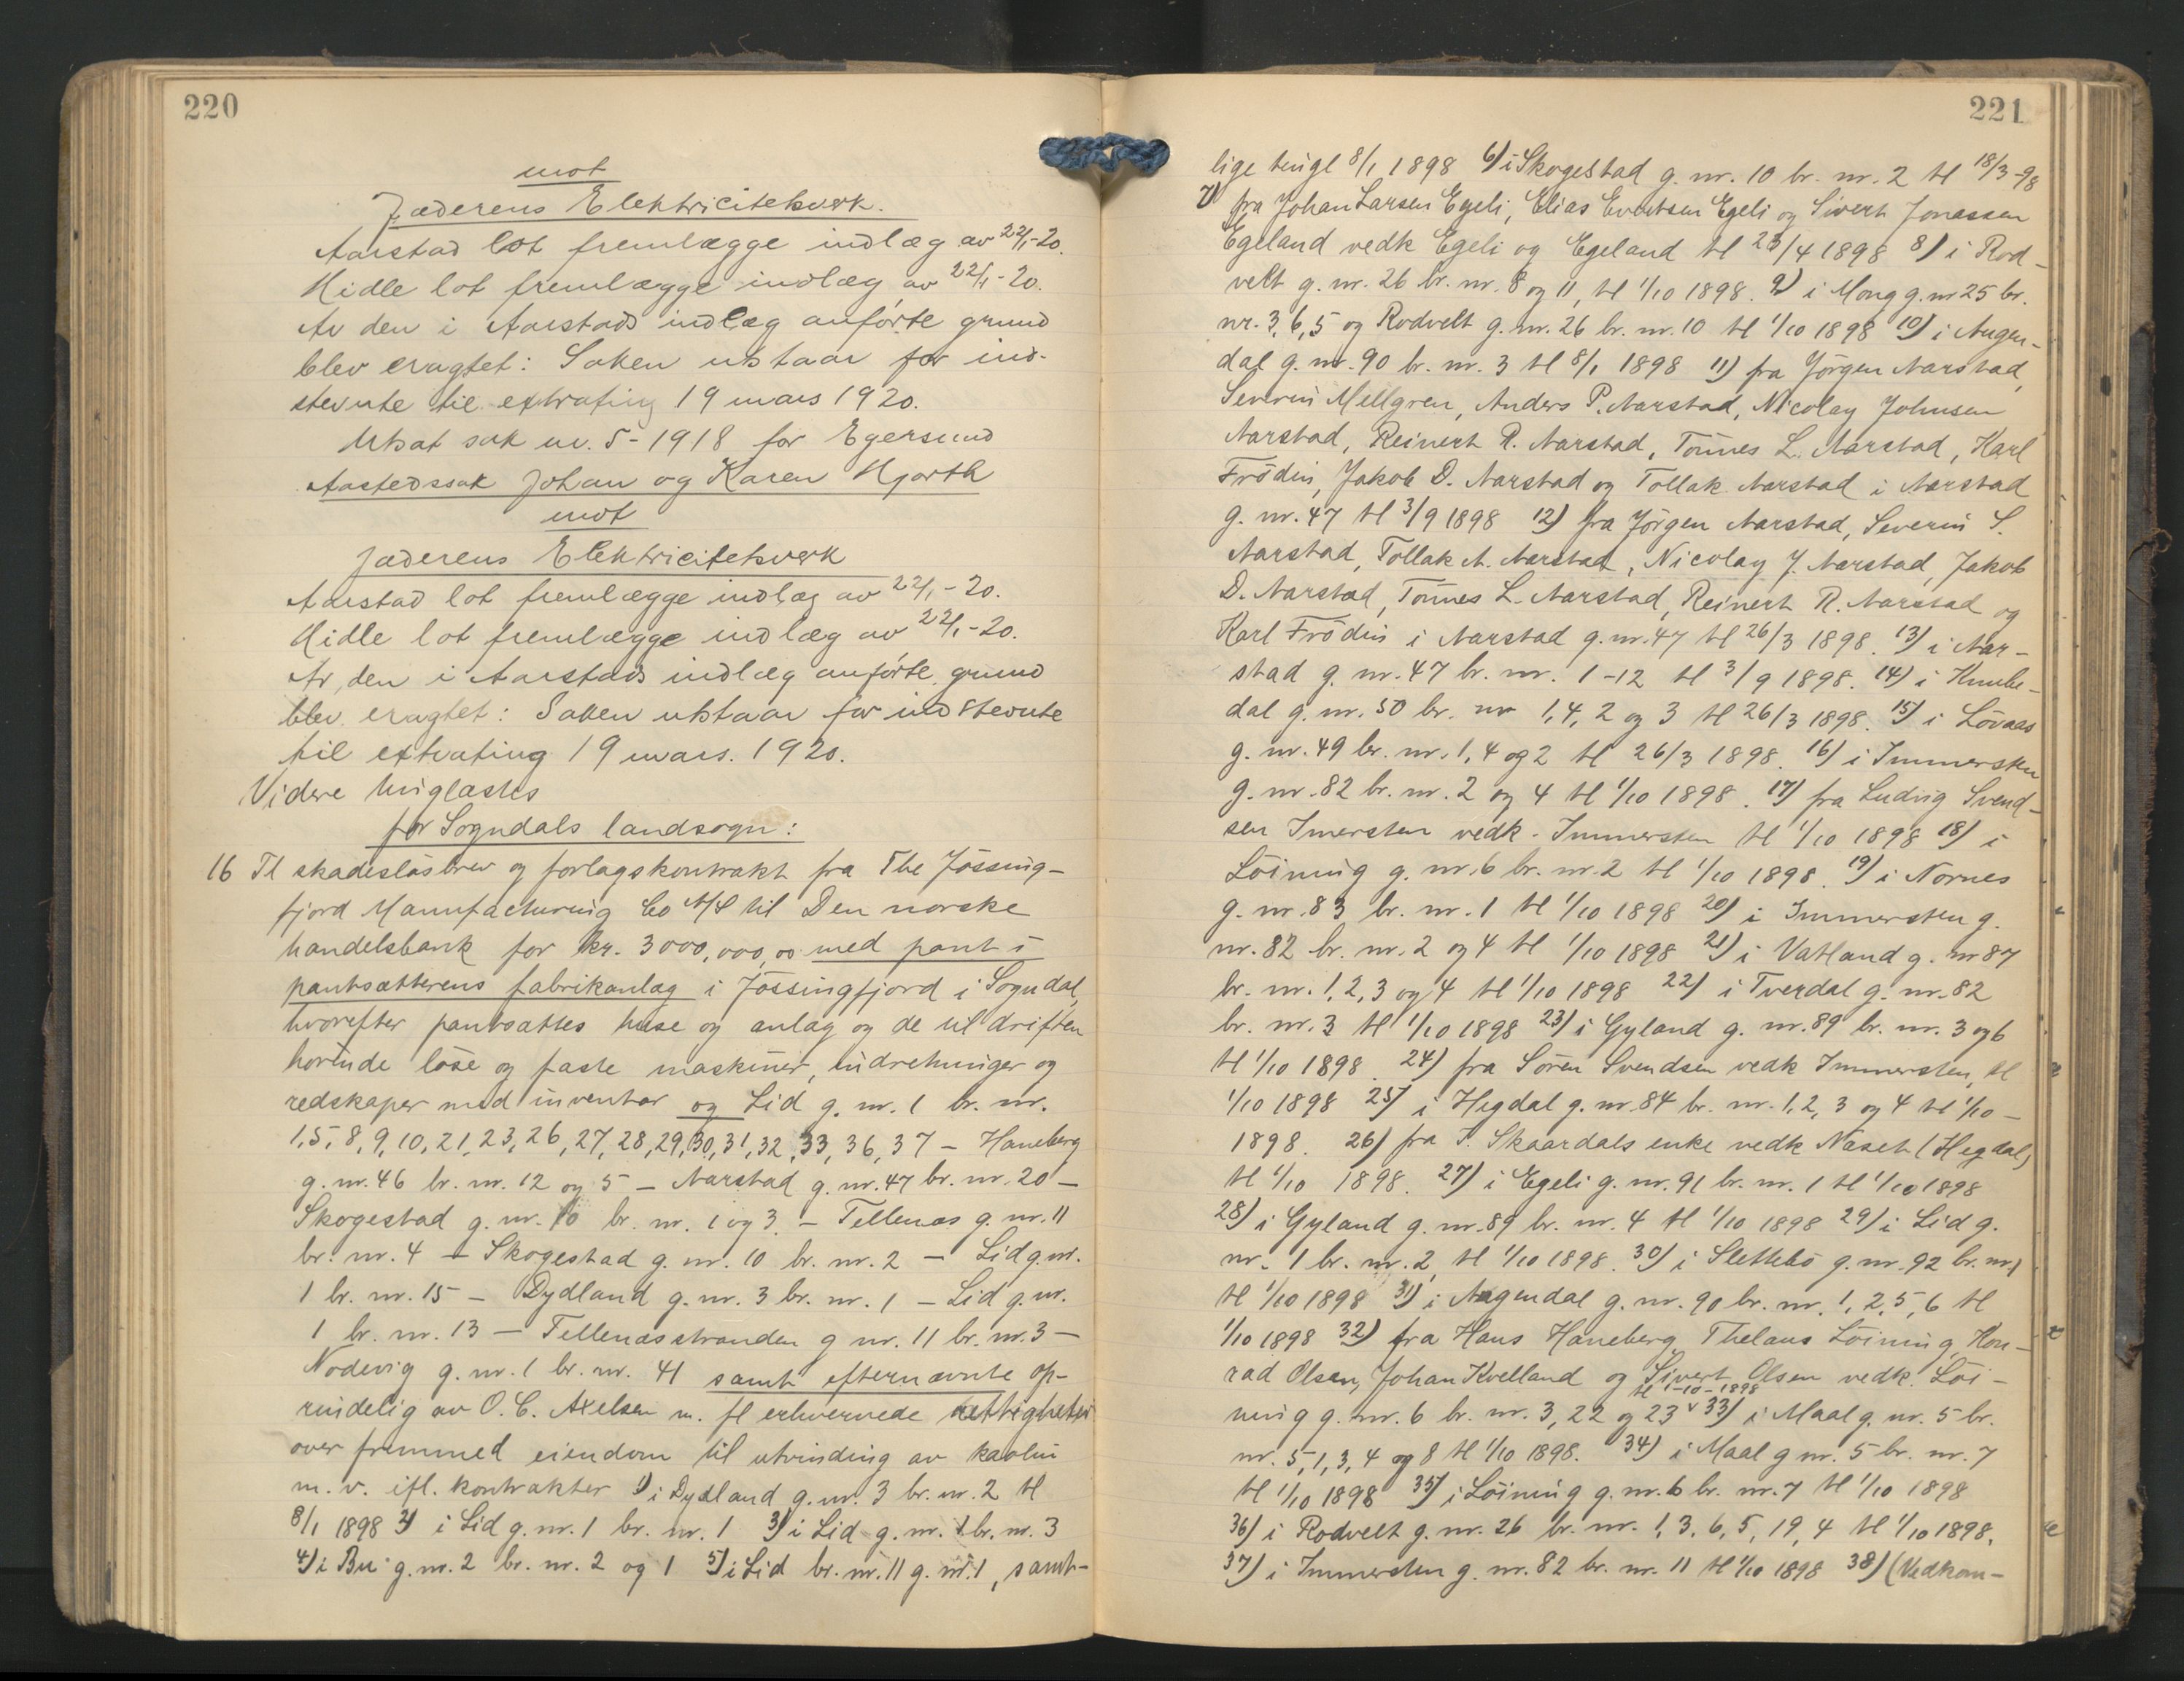 220
mot
Jæderens Elektricitetsverk.
Aarstad lot fremlægge indlæg av 22/1-20.
Hidle lot fremlægge indlæg av 22/1-20.
Av den i Aarstads indlæg anførte grund
blev eragtet: Saken utstaar for ind-
stevnte til extrating 19 mars 1920.
Utsat sak nr. 5-1918 for Egersund
Aastedssak Johan og Karen Hjorth
mot
Jæderens Elektricitetsverk
Aarstad lot fremlægge indlæg av 22/1-20.
Hidle lot fremlægge indlæg av 22/1-20.
Av den i Aarstads indlæg anførte grund
blev eragtet: Saken utstaar for indstevnte
til extrating 19 mars. 1920.
Videre tinglæstes
for Sogndals landsogn:
16 Tl skadesløsbrev og forlagskontrakt fra The Jøssing-
fjord Manufacturing Co A/S til Den norske
handelsbank for kr. 3000,000,00 med pant i
pantsætterens fabrikanlæg i Jøssingfjord i Sogndal,
hvorefter pantsættes huse og anlæg og de til driften
hørende løse og faste maskiner, indretninger og
redskaper med inventar og Lid g. nr. 1 br. nr.
1,5,8,9,10,21,23,26,27,28,29,30,31,32,33,36,37 - Haneberg
g. nr. 46 br. nr. 12 og 5 - Aarstad g. nr. 47 br. nr. 20 -
Skogestad g. nr. 10 br. nr. 1 og 3. - Tellenæs g. nr. 11
br. nr. 4 - Skogestad g. nr. 10 br. nr. 2 - Lid g. nr.
1 br. nr. 15 - Dydland g. nr. 3 br. nr. 1 - Lid g. nr.
1 br. nr. 13 - Tellenæsstranden g nr. 11 br. nr. 3 -
Nodevig g. nr. 1 br. nr. 41 samt efternævnte op-
rindelig av O. C. Axelsen m. fl erhvervede rettigheter
over fremmed eiendom til utvinding av kaolin
m. v. ifl. kontrakter 1) i Dydland g. nr. 3 br. nr. 2 tl
8/1 1898 2) i Lid g. nr. 1 br. nr. 1 3) i Lid g. nr. 1 br. nr. 3
4) i Bu g. nr. 2 br. nr. 2 og 1 5) i Lid br. nr. 11 g. nr. 1, samt-
221
lige tingl 8/1 1898 6) i Skogestad g. nr. 10 br. nr. 2 tl 18/3-98
7) fra Johan Larsen Egeli, Elias Evertsen Egeli og Sivert Jonassen
Egeland vedk Egeli og Egeland tl 23/4 1898 8) i Rod-
velt g. nr. 26 br. nr. 8 og 11, tl 1/10 1898. 9) i Mong g. nr 25 br.
nr. 3, 6, 5 og Rodvelt g. nr. 26 br. nr. 10 tl 1/10 1898 10) i Augen-
dal g. nr. 90 br. nr. 3 tl 8/1 1898 11) fra Jörgen Aarstad,
Severin Mellgren, Anders P. Aarstad, Nicolay Johnsen
Aarstad, Reinert R. Aarstad, Tönnes L. Aarstad, Karl
Frödin, Jakob D. Aarstad og Tollak Aarstad i Aarstad
g. nr. 47 tl 3/9 1898 12) fra Jörgen Aarstad, Severin S.
Aarstad, Tollak A. Aarstad, Nicolay J. Aarstad, Jakob
D. Aarstad, Tönnes L. Aarstad, Reinert R. Aarstad og
Karl Frödin i Aarstad g. nr. 47 tl 26/3 1898. 13) i Aar-
stad g. nr. 47 br. nr. 1-12 tl 3/9 1898. 14) i Knube-
dal g. nr. 50 br. nr 1, 4, 2 og 3 tl 26/3 1898. 15) i Lövaas
g. nr. 49 br. nr. 1, 4 og 2 tl 26/3 1898. 16) i Immersten
g. nr. 82 br. nr. 2 og 4 tl 1/10 1898. 17) fra Ludvig Svend-
sen Imersten vedk. Immersten tl 1/10 1898 18) i
Löining g. nr. 6 br. nr. 2 tl 1/10 1898. 19) i Nornes
g. nr. 83 br. nr. 1 tl 1/10 1898 20) i Immersten g.
nr. 82 br. nr. 2 og 4 tl 1/10 1898 21) i Vatland g. nr 87
br. nr. 1, 2, 3 og 4 tl 1/10 1898 22) i Tverdal g. nr. 82
br. nr. 3 tl 1/10 1898 23) i Gyland g. nr. 89 br. nr. 3 og 6
tl 1/10 1898. 24) fra Sören Svendsen vedk Immersten, tl
1/10 1898 25) i Hegdal g. nr. 84 br. nr. 1, 2, 3 og 4 tl 1/10 -
1898. 26) fra T. Skaardals enke vedk Næset (Hegdal)
tl 1/10 1898. 27) i Egeli g. nr. 91 br. nr. 1 tl 1/10 1898
28) i Gyland g. nr. 89 br. nr. 4 tl 1/10 1898 29) i Lid g.
nr. 1 br. nr. 2, tl 1/10 1898. 30) i Slettebö g. nr. 92 br. nr. 1
tl 1/10 1898 31) i Augendal g. nr. 90 br. nr. 1, 2, 5, 6 tl
1/10 1898 32) fra Hans Haneberg, Thelaus Löining, Kon-
rad Olsen, Johan Kvelland og Sivert Olsen vedk. Löi-
tl 1-10-1898
ning g. nr. 6 br. nr. 3, 22 og 23 v 33) i Maal g. nr. 5 br.
nr. 5, 1, 3, 4 og 8 tl 1/10 1898. 34) i Maal g nr. 5 br. nr. 7
tl 1/10 1898 35) i Löining g. nr. 6 br. nr. 7 tl 1/10 1898
36) i Rodvelt g. nr. 26 br. nr. 1, 3, 6, 5, 19, 4 tl 1/10 1898.
37) i Immersten g. nr. 82 br. nr. 11 tl 1/10 1898 38) (Vedkom-